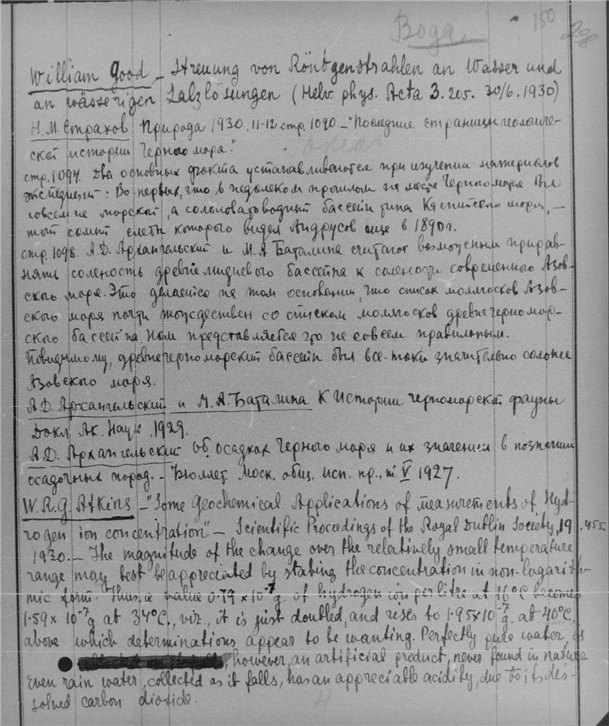 Вода. 150
William Good – Streuung von Röntgenstrahlen an Wasser und
an wässerigen Salzlösungen (Helv. phys. Acta 3. 205. 30/6. 1930)
Н.М. Страхов Природа 1930, 11-12 стр. 1090 – "Последние страницы геологиче-
ской истории Черного моря."
стр. 1097. Два основных факта устанавливаются при изучении материалов
экспедиций: Во первых, что в недалеком прошлом на месте Черного моря был
совсем не морской, а солоноватоводный бассейн типа Каспийского моря, –
тот самый следы которого видел Андрусов еще в 1890 г.
стр. 1098. А.Д. Архангельский и М.А. Баталина считают возможным прирав-
нять соленость древнеэвксинского бассейна к солености современного Азов-
ского моря. Это делается на том основании, что список моллюсков Азов-
ского моря почти тождествен со списком моллюсков древнечерномор-
ского бассейна. Нам представляется это не совсем правильным.
Повидимому, древнечерноморский бассейн был все-таки значительно солонее
Азовского моря.
А.Д. Архангельский и М.А. Баталина К истории черноморской фауны
Докл. Ак. Наук, 1929.
А.Д. Архангельский Об осадках Черного моря и их значении в познании
осадочных пород. – Бюллет. Моск. общ. исп. пр., т. V 1927.
W.R.G. Atkins – "Some Geochemical Applications of measurements of Hyd-
rogen ion concentration" – Scientific Procedings of the Royal Dublin Society, 19. 455.
1930. – The magnitude of the change over the relatively small temperature
range may best be appreciated by stating the concentration in non-logarith-
mic form. Thus, a value 0.79 × 10⁻⁷ g. of hydrogen ion per litre at 16°C becomes
1.59 × 10⁻⁷ g at 34°C., viz., it is just doubled, and rises to 1.95×10⁻⁷ g. at 40°C,
above which determinations appear to be wanting. Perfectly pure water, is
however, an artificial product, never found in nature
Even rain water, collected as it falls, has an appreciable acidity, due to its dis-
solved carbon dioxide.